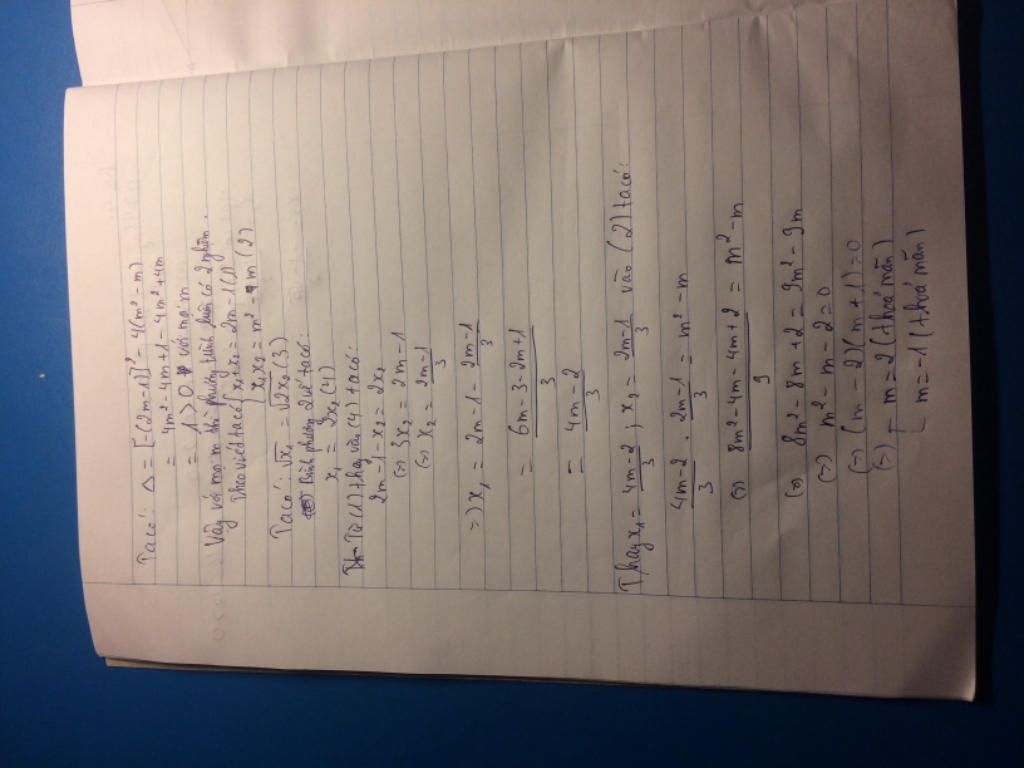 Ta có: Δ = [-(2m-1)]² - 4(m² - m)
= 4m² - 4m + 1 - 4m² + 4m
= 1 > 0 với mọi m
Vậy với mọi m thì phương trình luôn có 2 nghiệm.
Theo viét ta có { x₁ + x₂ = 2m - 1 (1)
x₁x₂ = m² - m (2)
Ta có: √x₁ = √2x₂ (3)
Bình phương 2 vế ta có:
x₁ = 2x₂ (4)
Từ (1) thay vào (4) ta có:
2m - 1 - x₂ = 2x₂
(=) 3x₂ = 2m - 1
(=) x₂ = (2m-1)/3
=) x₁ = 2m - 1 - (2m-1)/3
= (6m - 3 - 2m + 1)/3
= (4m - 2)/3
Thay x₁ = (4m-2)/3 ; x₂ = (2m-1)/3 vào (2) ta có:
(4m-2)/3 . (2m-1)/3 = m² - m
(=) (8m² - 4m - 4m + 2)/9 = m² - m
(=) 8m² - 8m + 2 = 9m² - 9m
(=) m² - m - 2 = 0
(=) (m - 2)(m + 1) = 0
(=) [ m = 2 (thoả mãn)
m = -1 (thoả mãn)